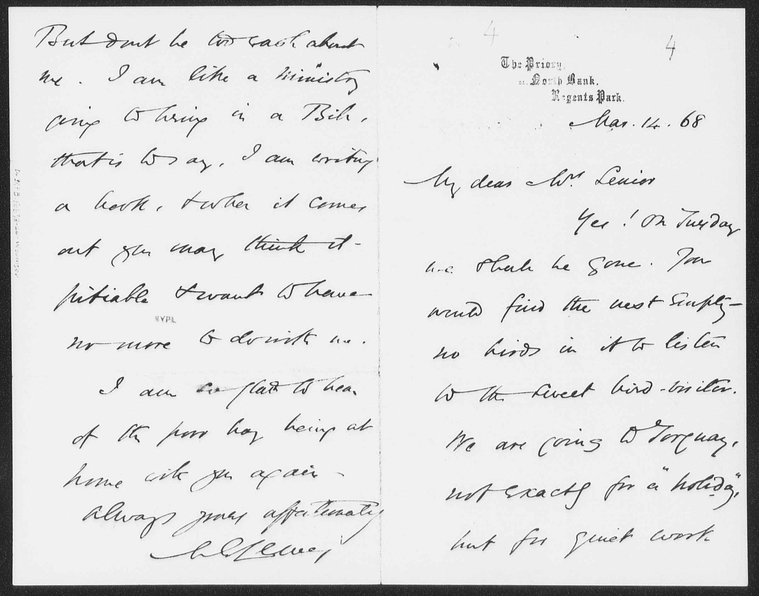 4
4
The Priory,
North Bank,
Regents Park.
Mar. 14. 68
My dear Mrs Senior
Yes! On Tuesday
we shall be gone. You
would find the nest empty—
no birds in it to listen
to the sweet bird-visitor.
We are going to Torquay,
not exactly for a "holiday",
but for quiet work
But don't be too about
me. I am like a Ministry
going to bring in a Bill,
that is to say, I am writing
a book, & when it comes
out you may think it
pitiable & want to have
no more to do with me.
NYPL
I am so glad to hear
of the poor boy being at
home with you again—
always yours affectionately
M E Lewes